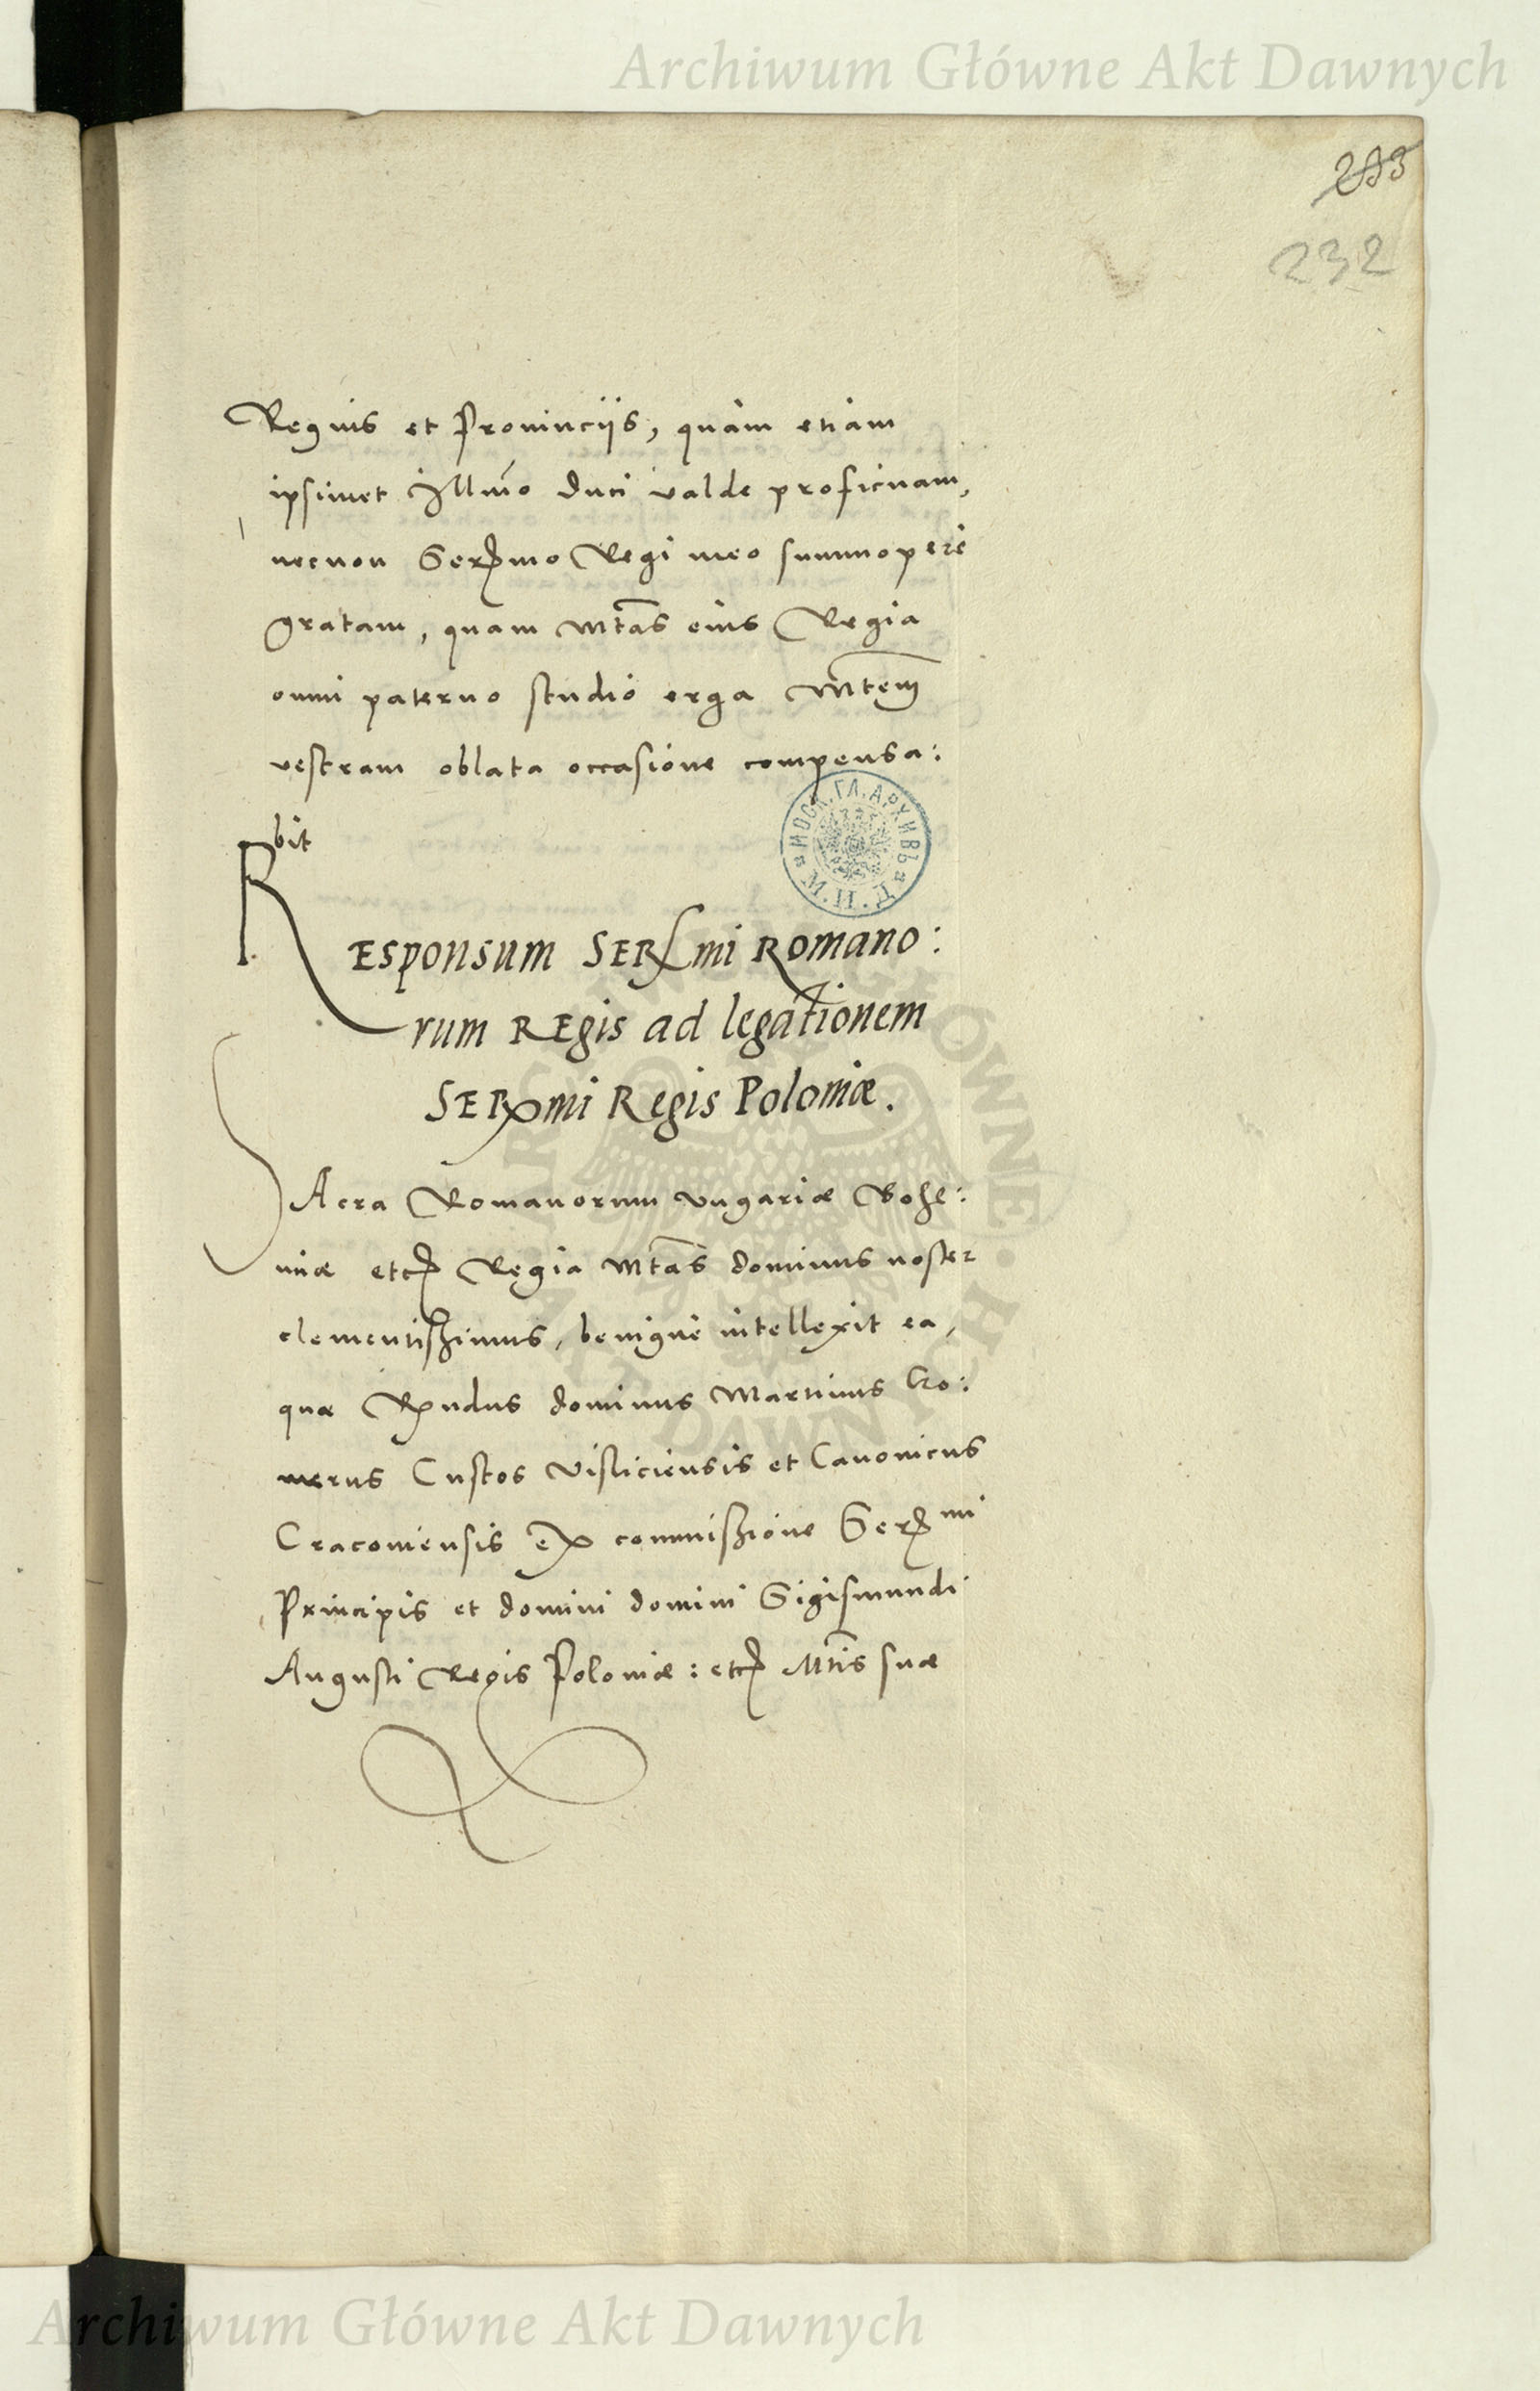 Archiwum Główne Akt Dawnych
232
Regnis et Prouincijs, quàm etiam
ipsimet Illmo Duci valde proficuam,
necnon Sermo Regi meo summopere
gratam, quam Mtas eius Regia
omni paterno studio erga Mtem
vestram oblata occasione compensa:
bit
МОСК. ГЛ. АРХИВЪ М. И. Д.
RESponsum SERmi Romano:
rum REgis ad legationem
SERmi Regis Poloniæ.
SAcra Romanorum Vngariæ Bohe:
miæ etc Regia Mtas dominus noster
clementissimus, benignè intellexit ea,
quæ Rndus dominus Martinus Cro:
merus Custos Visliciensis et Canonicus
Cracouiensis ex commissione Sermi
Principis et domini domini Sigismundi
Augusti Regis Poloniæ: etc Mtis suæ
Archiwum Główne Akt Dawnych